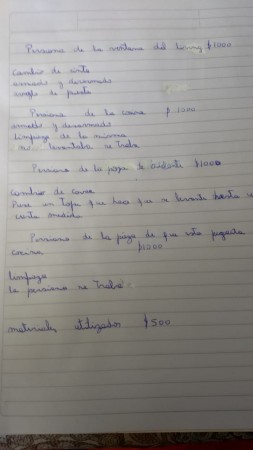 Persiana de la ventana del living $1000
Cambio de cinta
armado y desarmado
arreglo de puerta
Persiana de la $1000
armado y desarmado
limpieza de la misma
no levantaba se traba
Persiana de la pieza de $1000
Cambio de
Puse un tope que hace que se levante hasta
cierta medida
Persiana de la pieza de que esta pegada
cocina $1000
limpieza
la persiana se traba
materiales utilizados $500